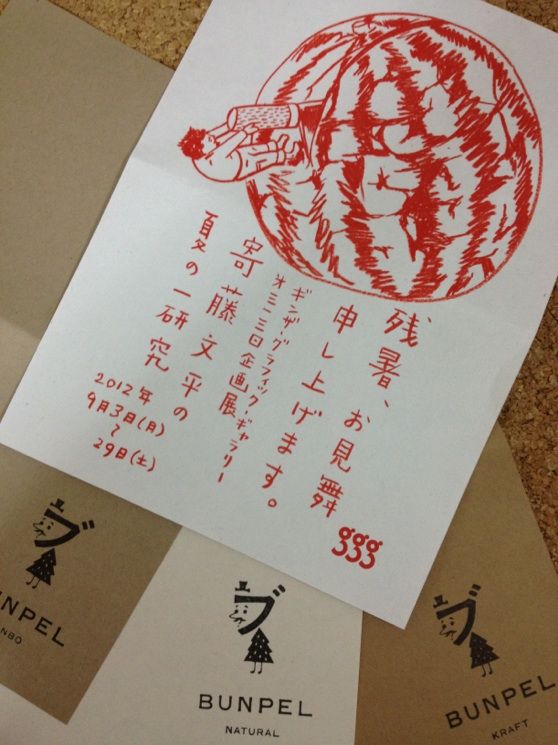 残暑、お見舞
申し上げます。
ギンザ・グラフィック・ギャラリー
オ三一三回企画展
寄藤文平の
夏の一研究
2012年
9月3日(月)
〜
29日(土)
ggg
ブ
UNPEL
NBO
ブ
BUNPEL
NATURAL
ブ
BUNPEL
KRAFT